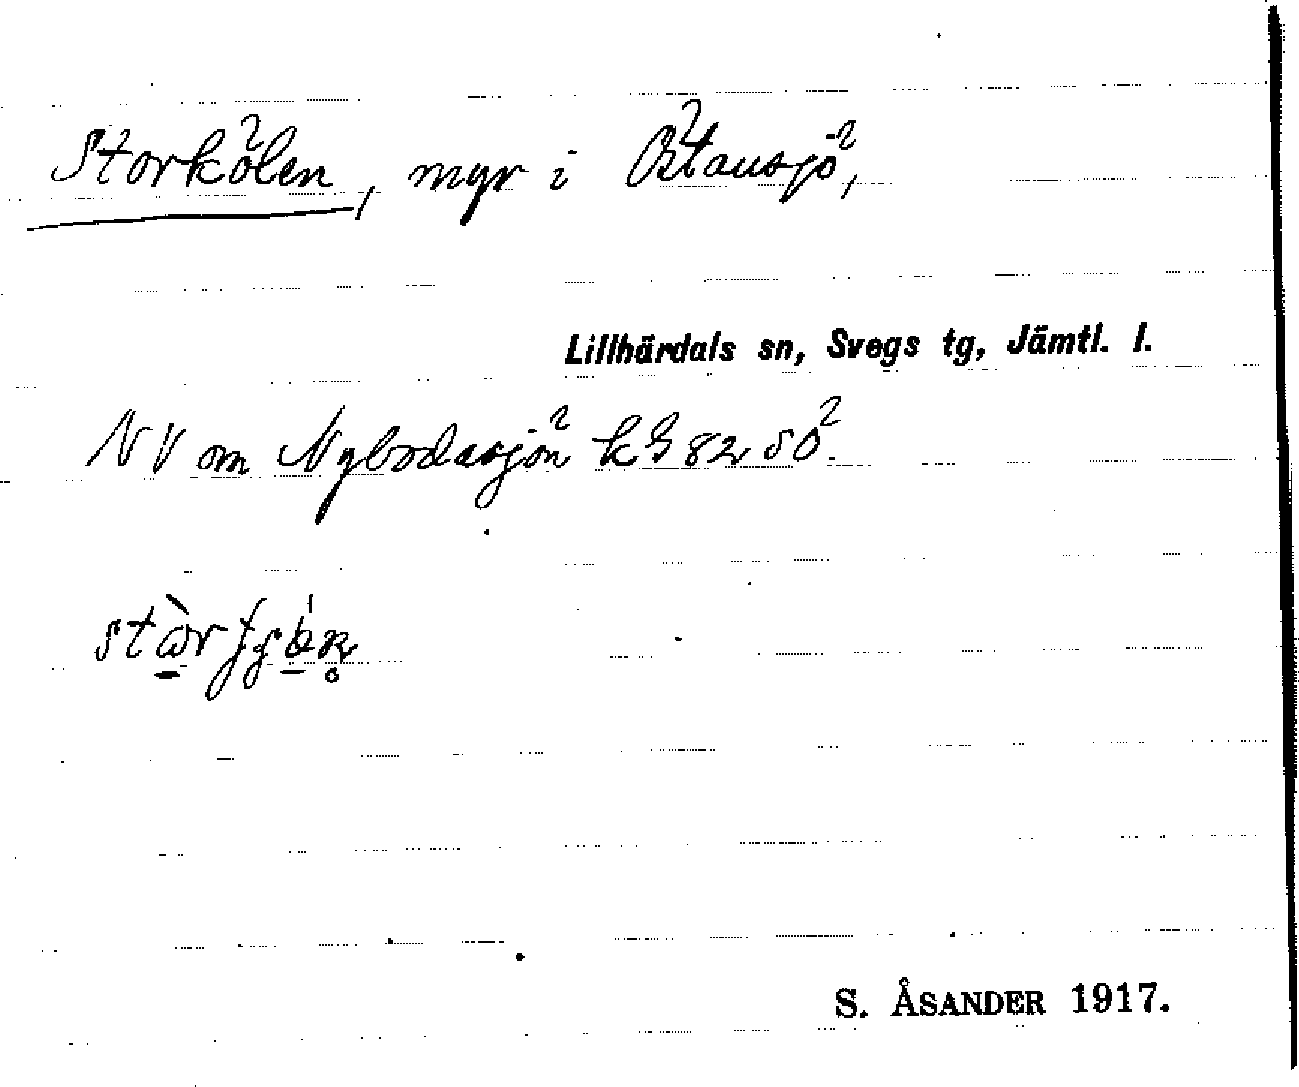 Storkölen, myr i Östansjö,
Lillhärdals sn, Svegs tg, Jämtl. l.
NV om Nybodasjön
S. ÅSANDER 1917.